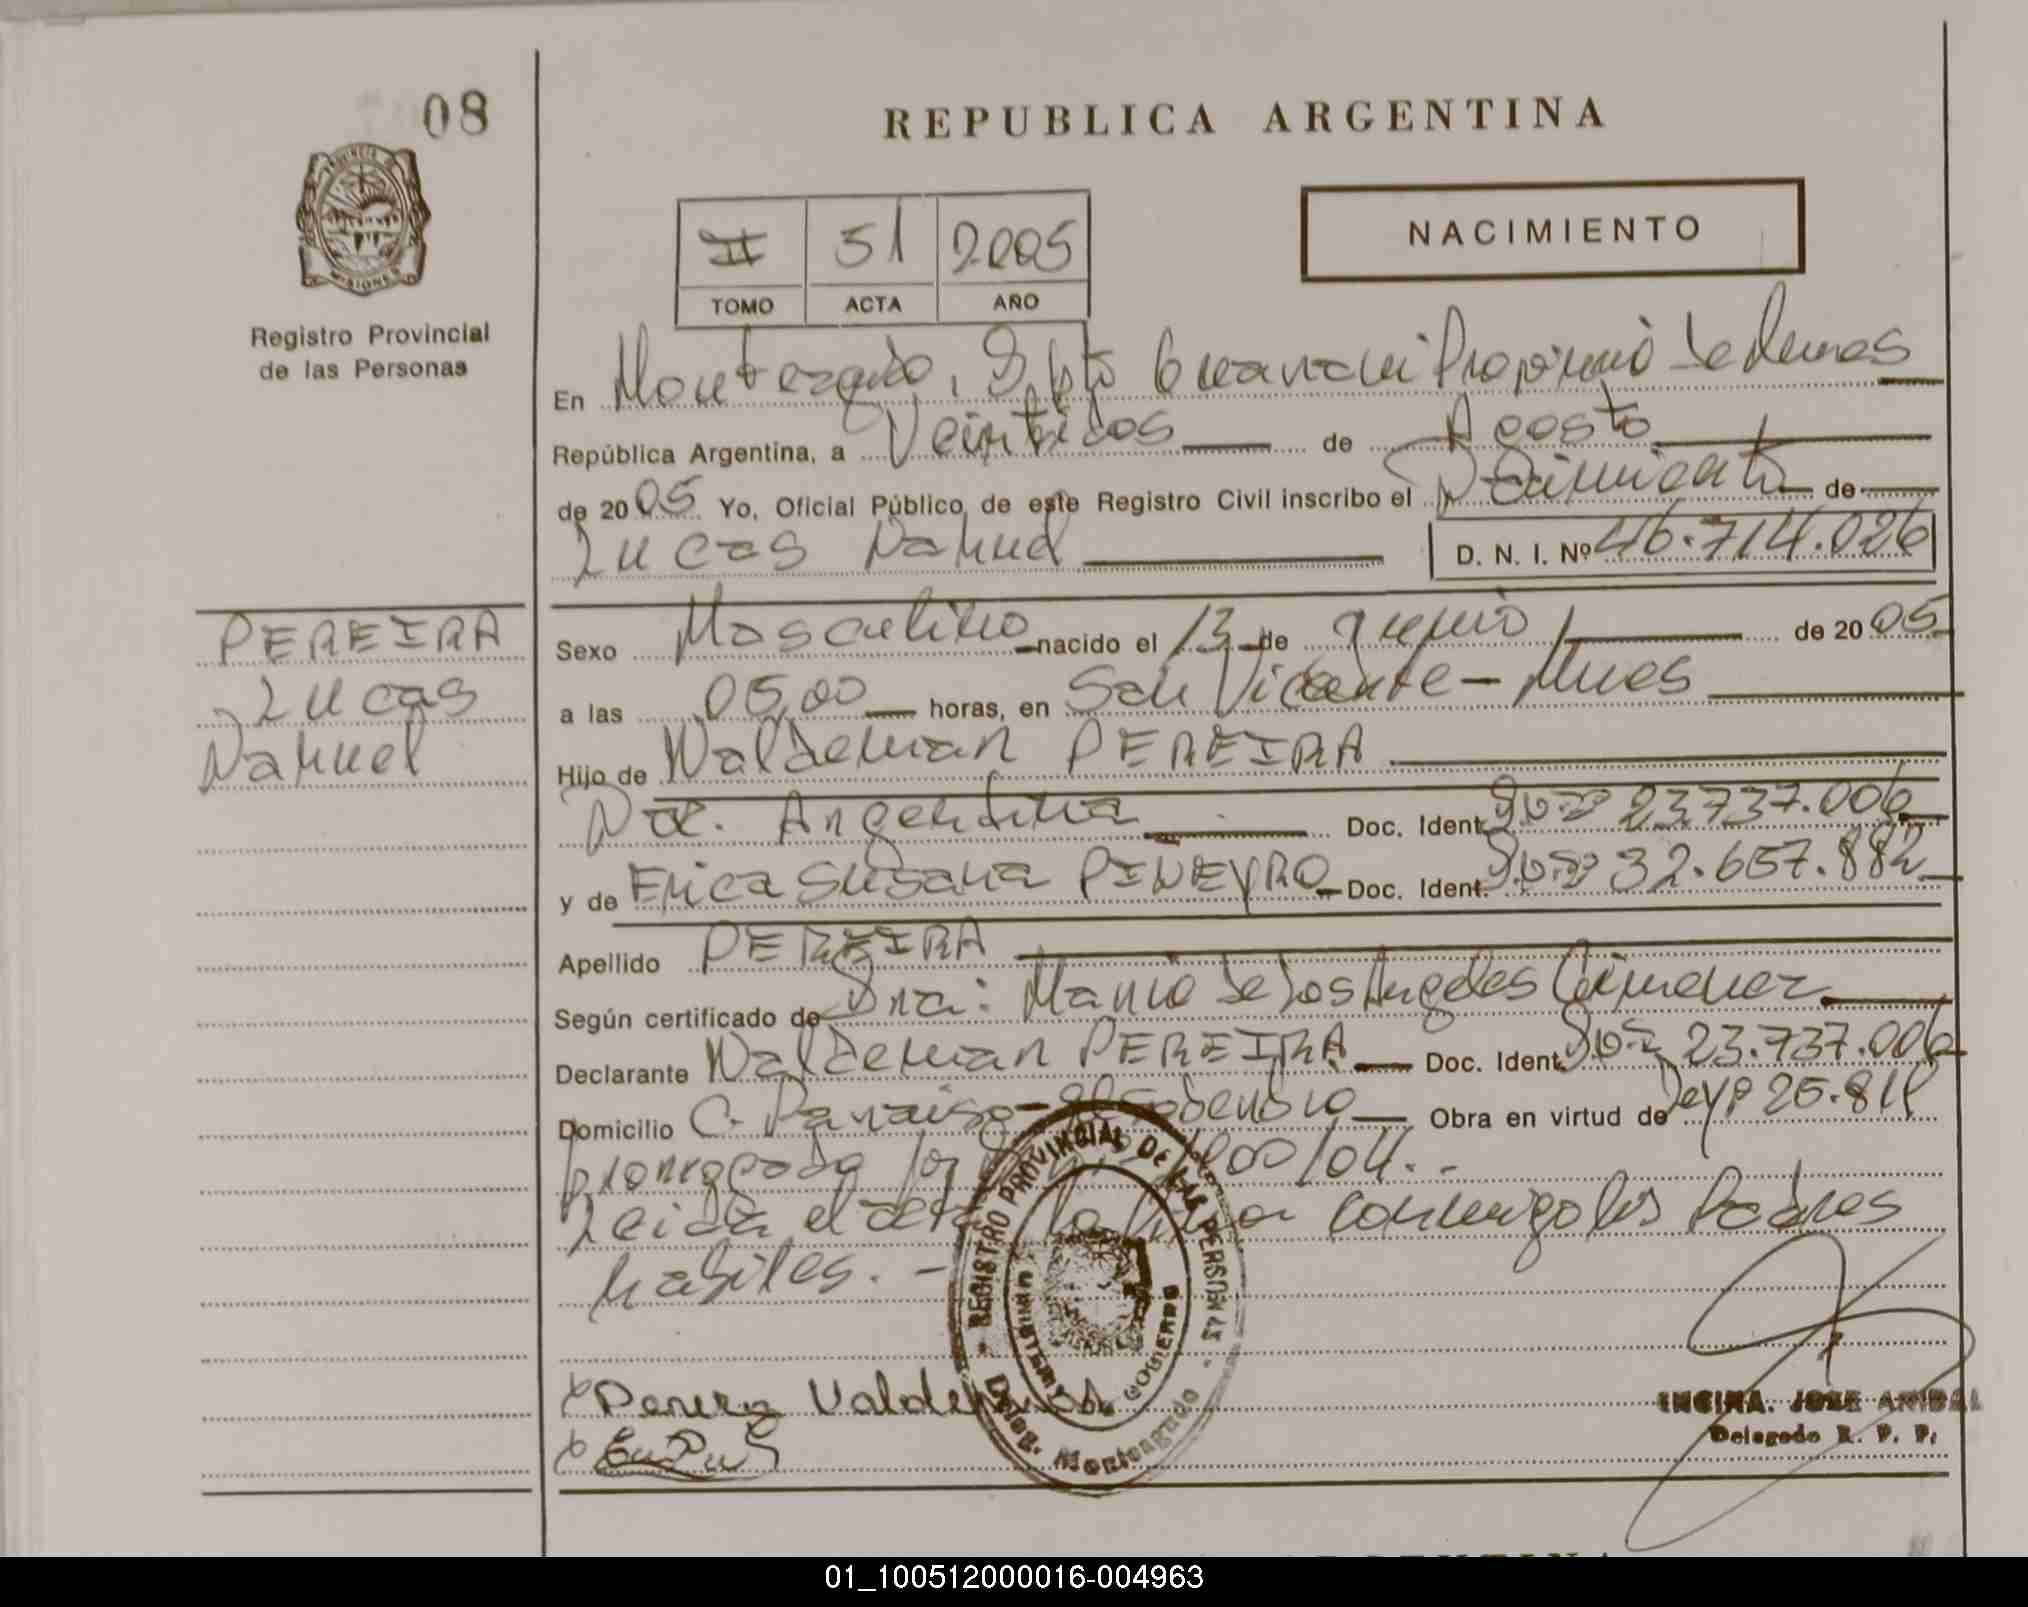 08
REPUBLICA ARGENTINA
NACIMIENTO
II 51 2005
TOMO ACTA AÑO
Registro Provincial
de las Personas
En Monteagudo, Dpto Guarani Provincia de Mnes
República Argentina, a Veintidos de Agosto
de 2005 Yo, Oficial Público de este Registro Civil inscribo el Nacimiento de
Lucas Nahuel D. N. I. Nº 46.714.026
PEREIRA
Lucas
Nahuel
Sexo Masculino nacido el 13 de Junio de 2005
a las 05,00 horas, en San Vicente - Mnes
Hijo de Waldemar PEREIRA
Nac. Argentina Doc. Ident. 23.737.006
y de Erica Susana PINEYRO Doc. Ident. 32.657.882
Apellido PEREIRA
Según certificado de Dra: Maria de los Angeles Gimenez
Declarante Waldemar PEREIRA Doc. Ident. 23.737.006
Domicilio C. Paraiso - El Soberbio Obra en virtud de Ley 25.819
prorrogada por /04.-
Leida el acta la firman conmigo los Padres
habiles. -
REGISTRO PROVINCIAL DE LAS PERSONAS
GOBIERNO
Deleg. Monteagudo
x Pereira Valdemar
ENCINA. JOSE ANIBAL
Delegado R. P. P.
01_100512000016-004963